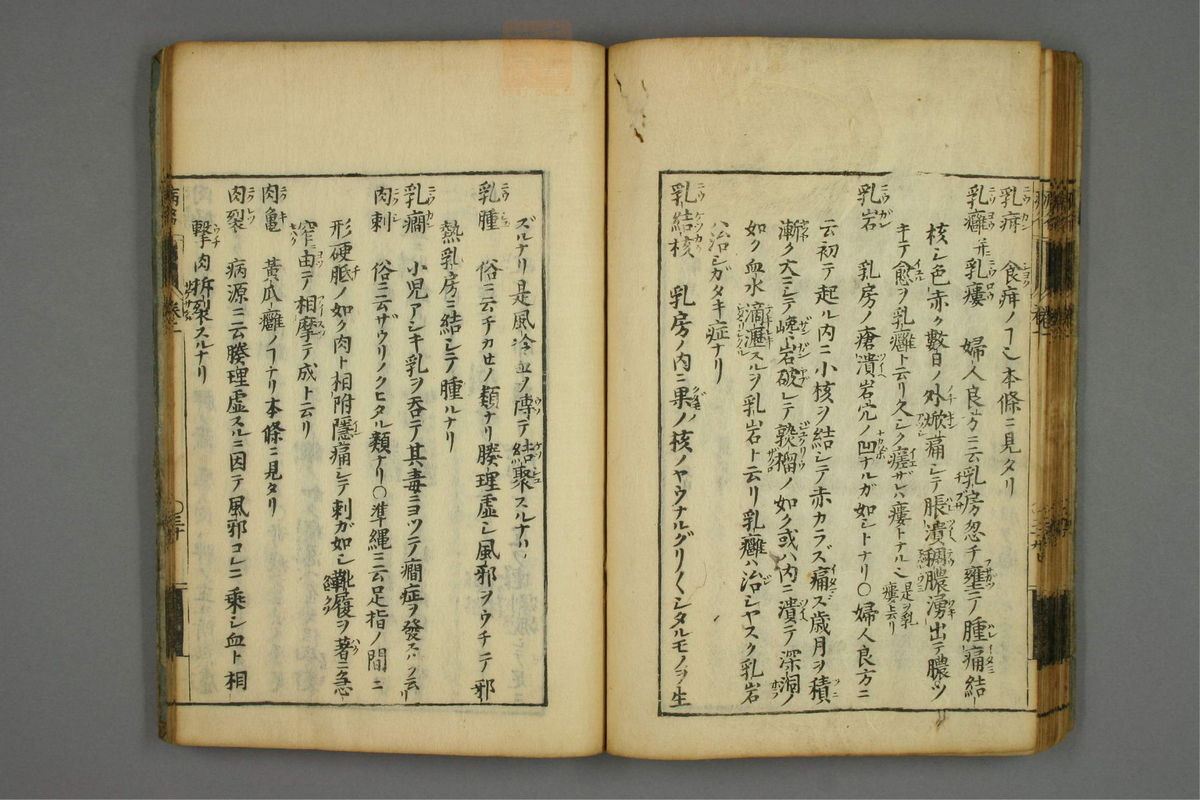 乳疳 食疳ノ丁也本條ニ見タリ
乳癰 并ニ乳瘻 婦人良方ニ云乳房忽チ壅テ腫痛結
核シ色赤ク數日ノ外焮痛シテ脹潰稠膿湧出テ膿ツ
キテ愈ヲ乳癰ト云リ久シク瘥ザレハ瘻トナル也 是ヲ乳瘻ト云リ
乳岩 乳房ノ瘡潰岩穴ノ凹ナルガ如シトナリ○婦人良方ニ
云初テ起ル内ニ小核ヲ結シテ赤カラズ痛ス歳月ヲ積
漸ク大ニシテ巉岩破レテ熟榴ノ如ク或ハ内ニ潰テ深洞ノ
如ク血水滴瀝スルヲ乳岩ト云リ乳癰ハ治シヤスク乳岩
ハ治シガタキ症ナリ
乳結核 乳房ノ内ニ果ノ核ノヤウナルグリ〱シタルモノヲ生
ズルナリ是風冷血ヲ搏テ結聚スルナリ
乳腫 俗ニ云チカセノ類ナリ腠理虚シ風邪ヲウチテ邪
熱乳房ニ結シテ腫ルナリ
乳癎 小児アシキ乳ヲ呑テ其毒ニヨツテ癎症ヲ發スルヲ云リ
肉刺 俗ニ云ザウリノクヒタル類ナリ○準縄ニ云足指ノ間ニ
形硬胝ノ如ク肉ト相附隱痛シテ刺ガ如シ靴履ヲ著ニ急
窄ニ由テ相摩テ成ト云リ
肉亀 黃瓜癰ノ丁ナリ本條ニ見タリ
肉裂 病源ニ云腠理虚スルニ因テ風邪コレニ乘シ血ト相
撃肉拆裂スルナリ